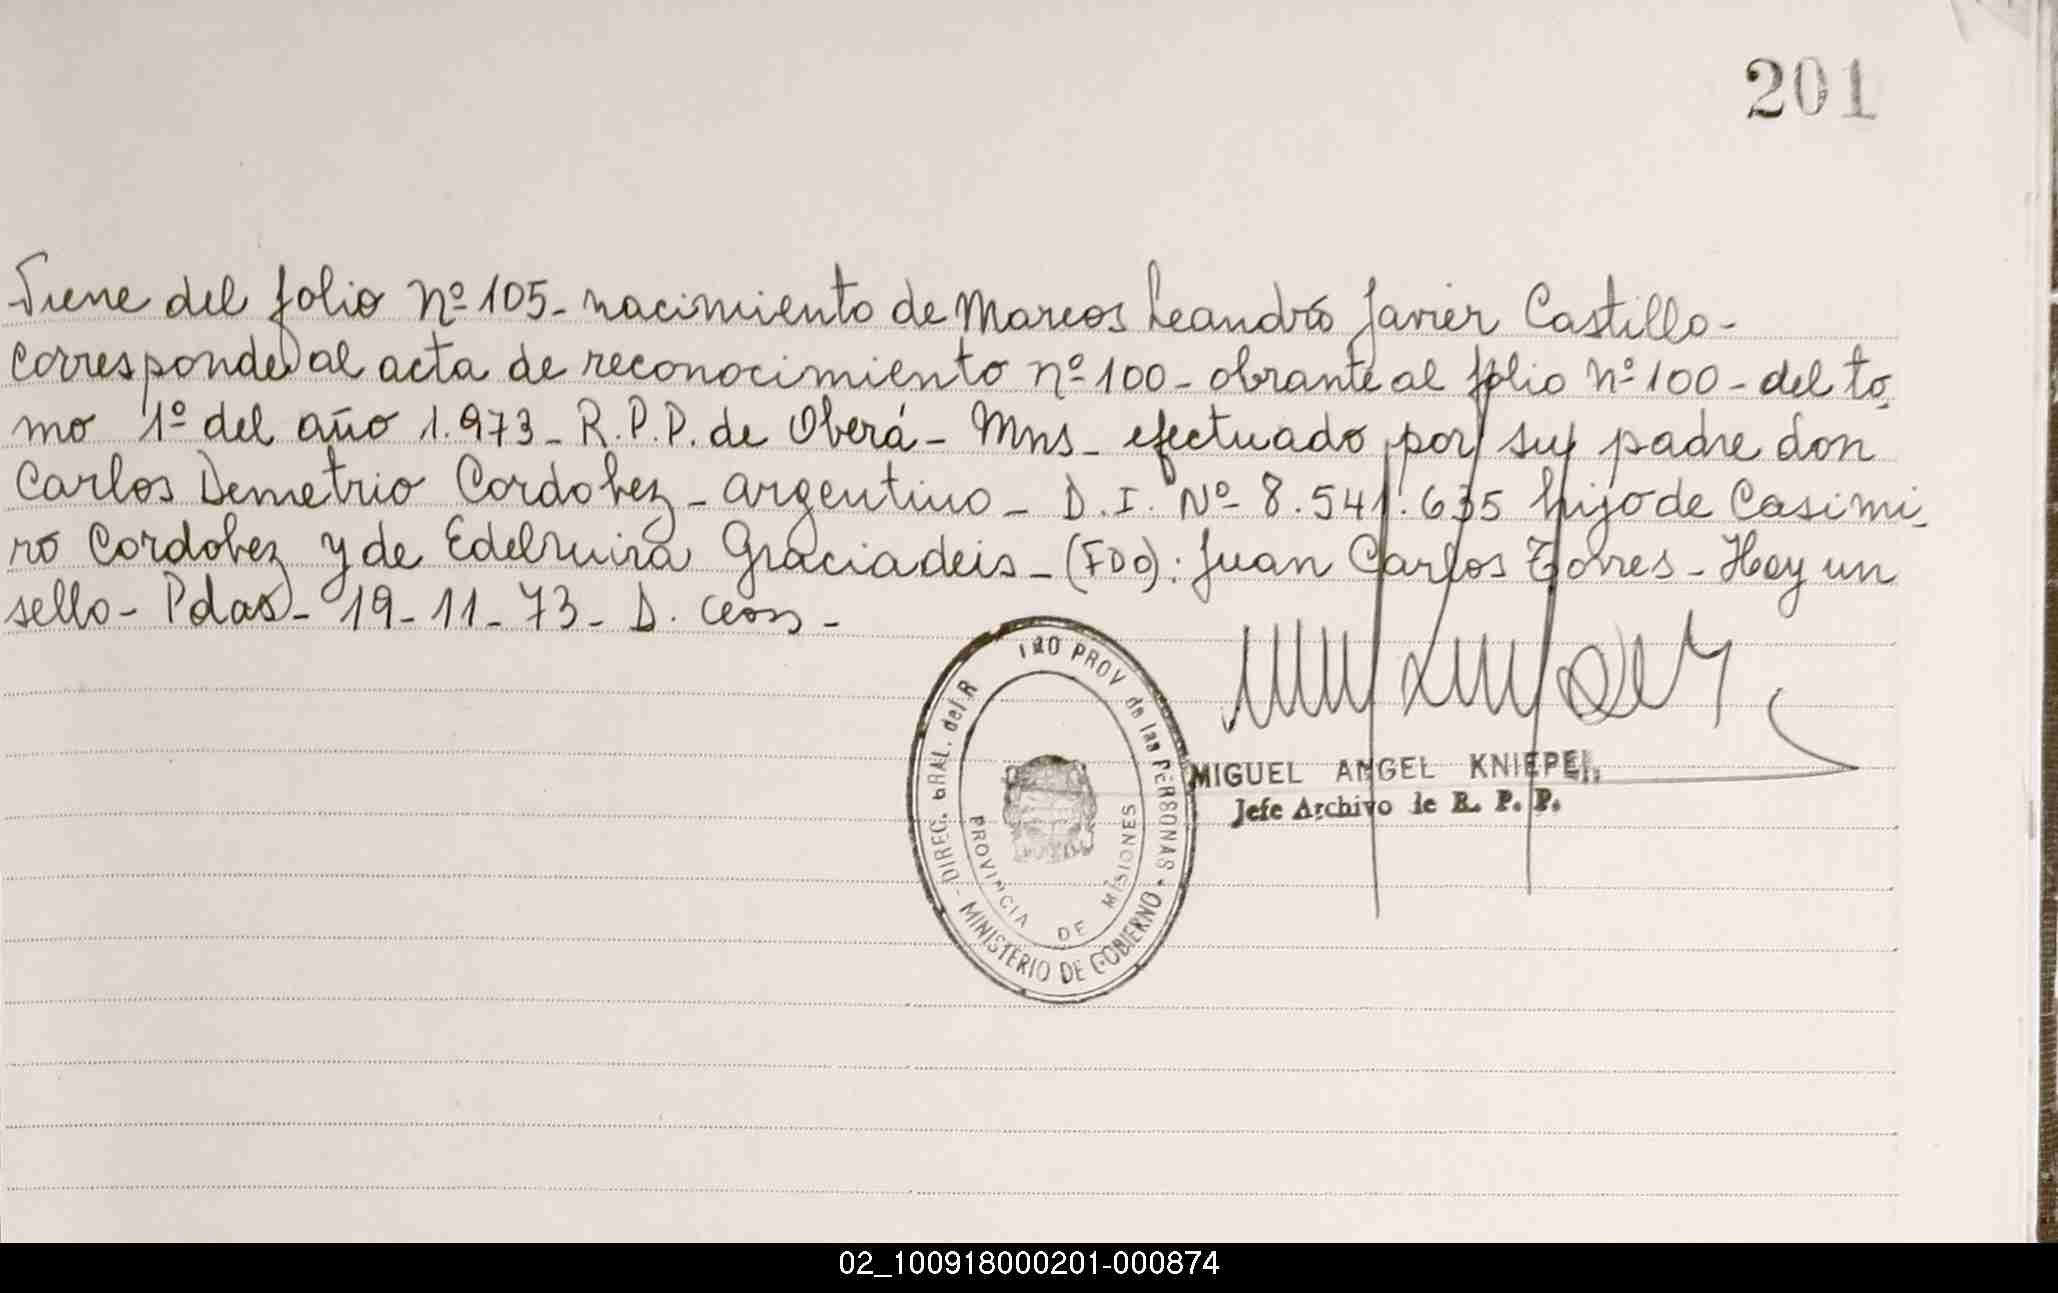 201
Viene del folio Nº 105 - nacimiento de Marcos Leandro Javier Castillo -
Corresponde al acta de reconocimiento nº 100 - obrante al folio nº 100 - del to-
mo 1º del año 1.973 - R.P.P. de Oberá - Mns - efectuado por su padre don
Carlos Demetrio Cordobez - argentino - D.I. Nº 8.541.635 hijo de Casimi-
ro Cordobez y de Edelmira Graciadeis - (FDO): Juan Carlos Torres - Hay un
sello - Pdas - 19 - 11 - 73 - D.
MIGUEL ANGEL KNIEPEL
Jefe Archivo de R. P. P.
DIREC. GRAL. del R PROV de las PERSONAS - MINISTERIO DE GOBIERNO -
PROVINCIA DE MISIONES
02_100918000201-000874